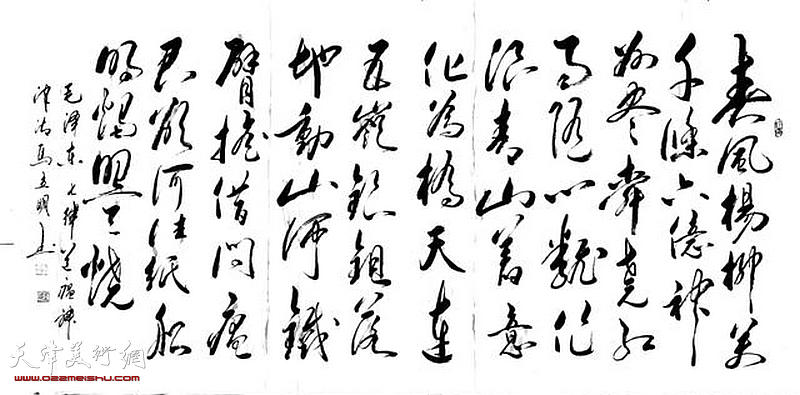 春風楊柳萬
千條六億神
州盡舜堯紅
雨隨心翻作
浪青山着意
化為橋天連
五嶺銀鉏落
地動山河鐵
臂搖借問瘟
君欲何往紙船
明燭照天燒
毛澤東七律送瘟神
津沽馬立明書
天津美術網
www.022meishu.com